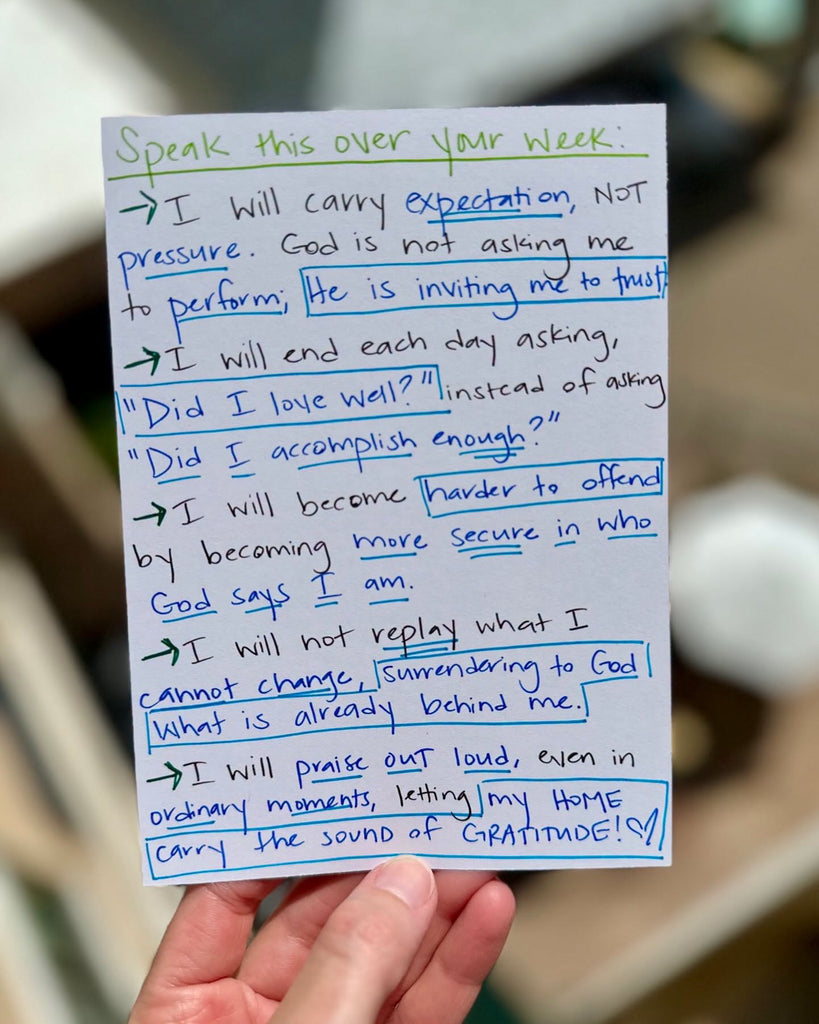 Speak this over your week:
→ I will carry expectation, NOT
pressure. God is not asking me
to perform; He is inviting me to trust
→ I will end each day asking,
"Did I love well?" instead of asking
"Did I accomplish enough?"
→ I will become harder to offend
by becoming more secure in who
God says I am.
→ I will not replay what I
cannot change, surrendering to God
what is already behind me.
→ I will praise out loud, even in
ordinary moments, letting my HOME
carry the sound of GRATITUDE! ♡